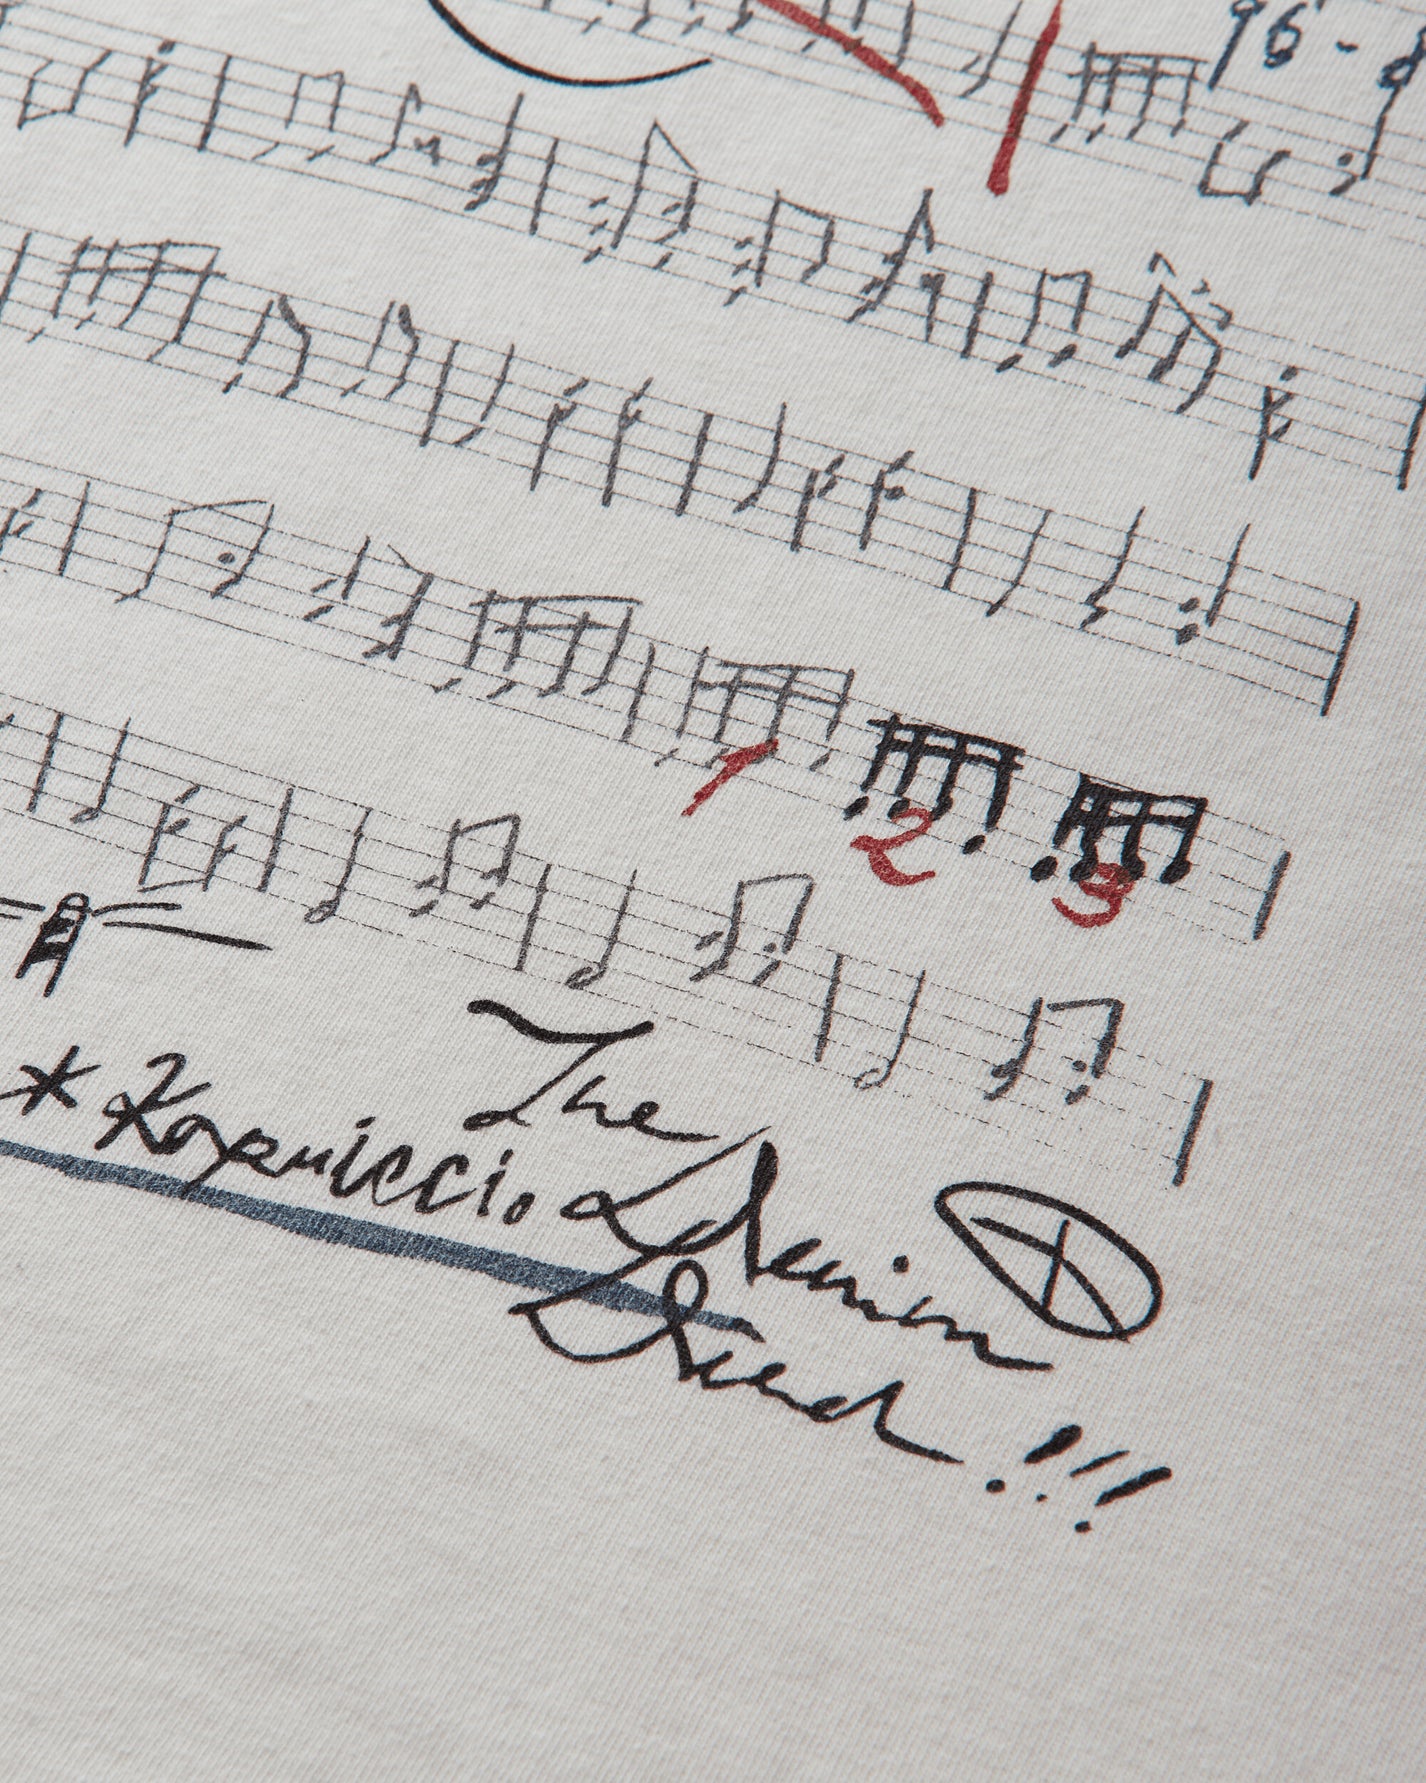 96 -
1 2 3
The
* Kapriccio
Denim
Dead !!!